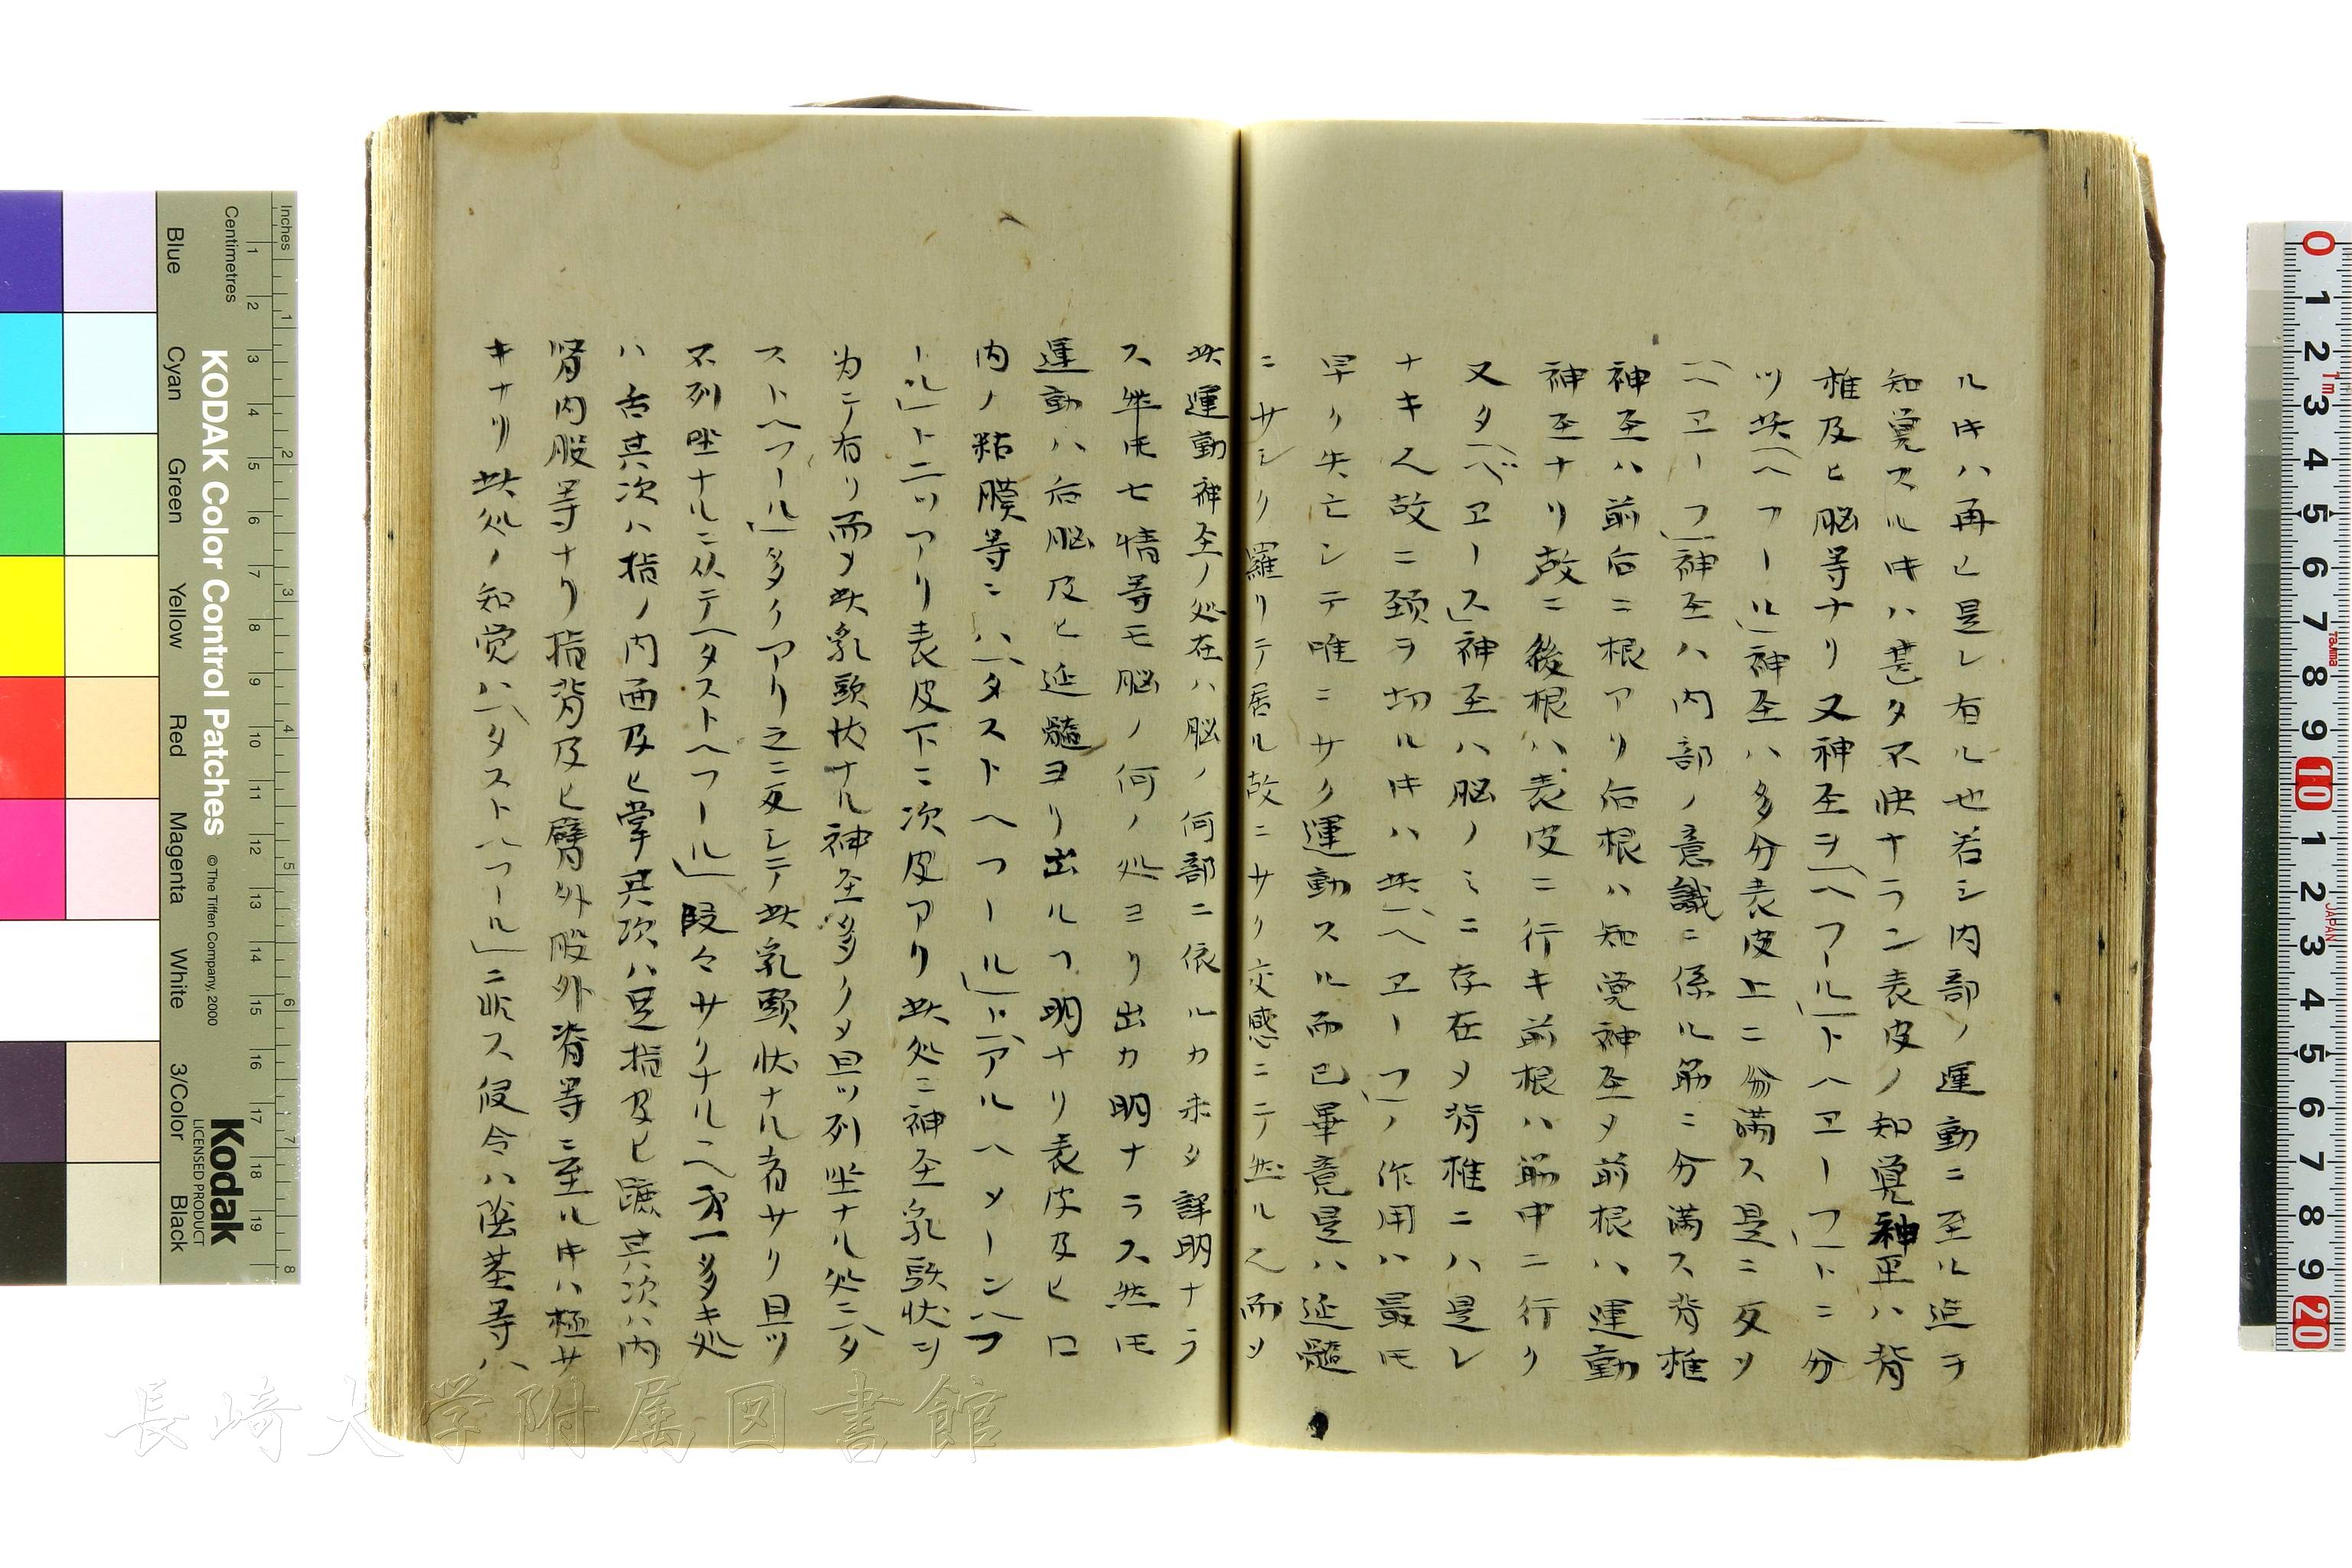 ルキハ再ヒ是レ有ル也若シ内部ノ運動ニ至ル迄ヲ
知覚スルキハ甚タ不快ナラン表皮ノ知覚神圣ハ背
椎及ヒ脳等ナリ又神圣ヲ「ヘフール」トヘエーフ」トニ分
ツ其「ヘフール」神圣ハ多分表皮上ニ分満ス是ニ反ソ
「ヘエーフ」神圣ハ内部ノ意識ニ係ル筋ニ分満ス背椎
神圣ハ前后ニ根アリ后根ハ知覚神圣メ前根ハ運動
神圣ナリ故ニ後根ハ表皮ニ行キ前根ハ筋中ニ行ク
又タ「ベエース」神圣ハ脳ノミニ存在メ背椎ニハ是レ
ナキ人故ニ頚ヲ切ルキハ其「ヘエーフ」ノ作用ハ最モ
早ク失亡シテ唯ニサク運動スル而已畢竟是ハ延髄
ニサシク羅リテ居ル故ニサク交感ニテ然ル人而ソ
此運動神圣ノ処在ハ脳ノ何部ニ依ルカ未タ詳明ナラ
ス 七情等モ脳ノ何ノ処ヨリ出カ明ナラス然モ
運動ハ后脳及ヒ延髄ヨリ出ルヿ明ナリ表皮及ヒ口
内ノ粘膜等ニハ「タストヘフール」ト「アルハメーンハフ
ール」ト二ツアリ表皮下ニ次皮アリ此処ニ神圣乳頭状ヲ
為テ有リ而メ此乳頭状ナル神圣多クメ且ツ列坐ナル処ニ「タ
ストヘフール」多クアリ之ニ反シテ此乳頭状ナル者サク且ツ
不列坐ナルニ从テ「タストヘフール」段々サクナル人第一多キ処
ハ舌其次ハ指ノ内面及ヒ掌其次ハ足指及ヒ蹠其次ハ内
臂内股等ナリ指背及ヒ臂外股外脊等ニ至ルキハ極サ
キナリ此処ノ知覚ハ「タストハフール」ニ非ス仮令ハ陰茎等ハ
KODAK Color Control Patches
© The Tiffen Company, 2000
Kodak
LICENSED PRODUCT
Inches
Centimetres
Blue
Cyan
Green
Yellow
Red
Magenta
White
3/Color
Black
長崎大学附属図書館